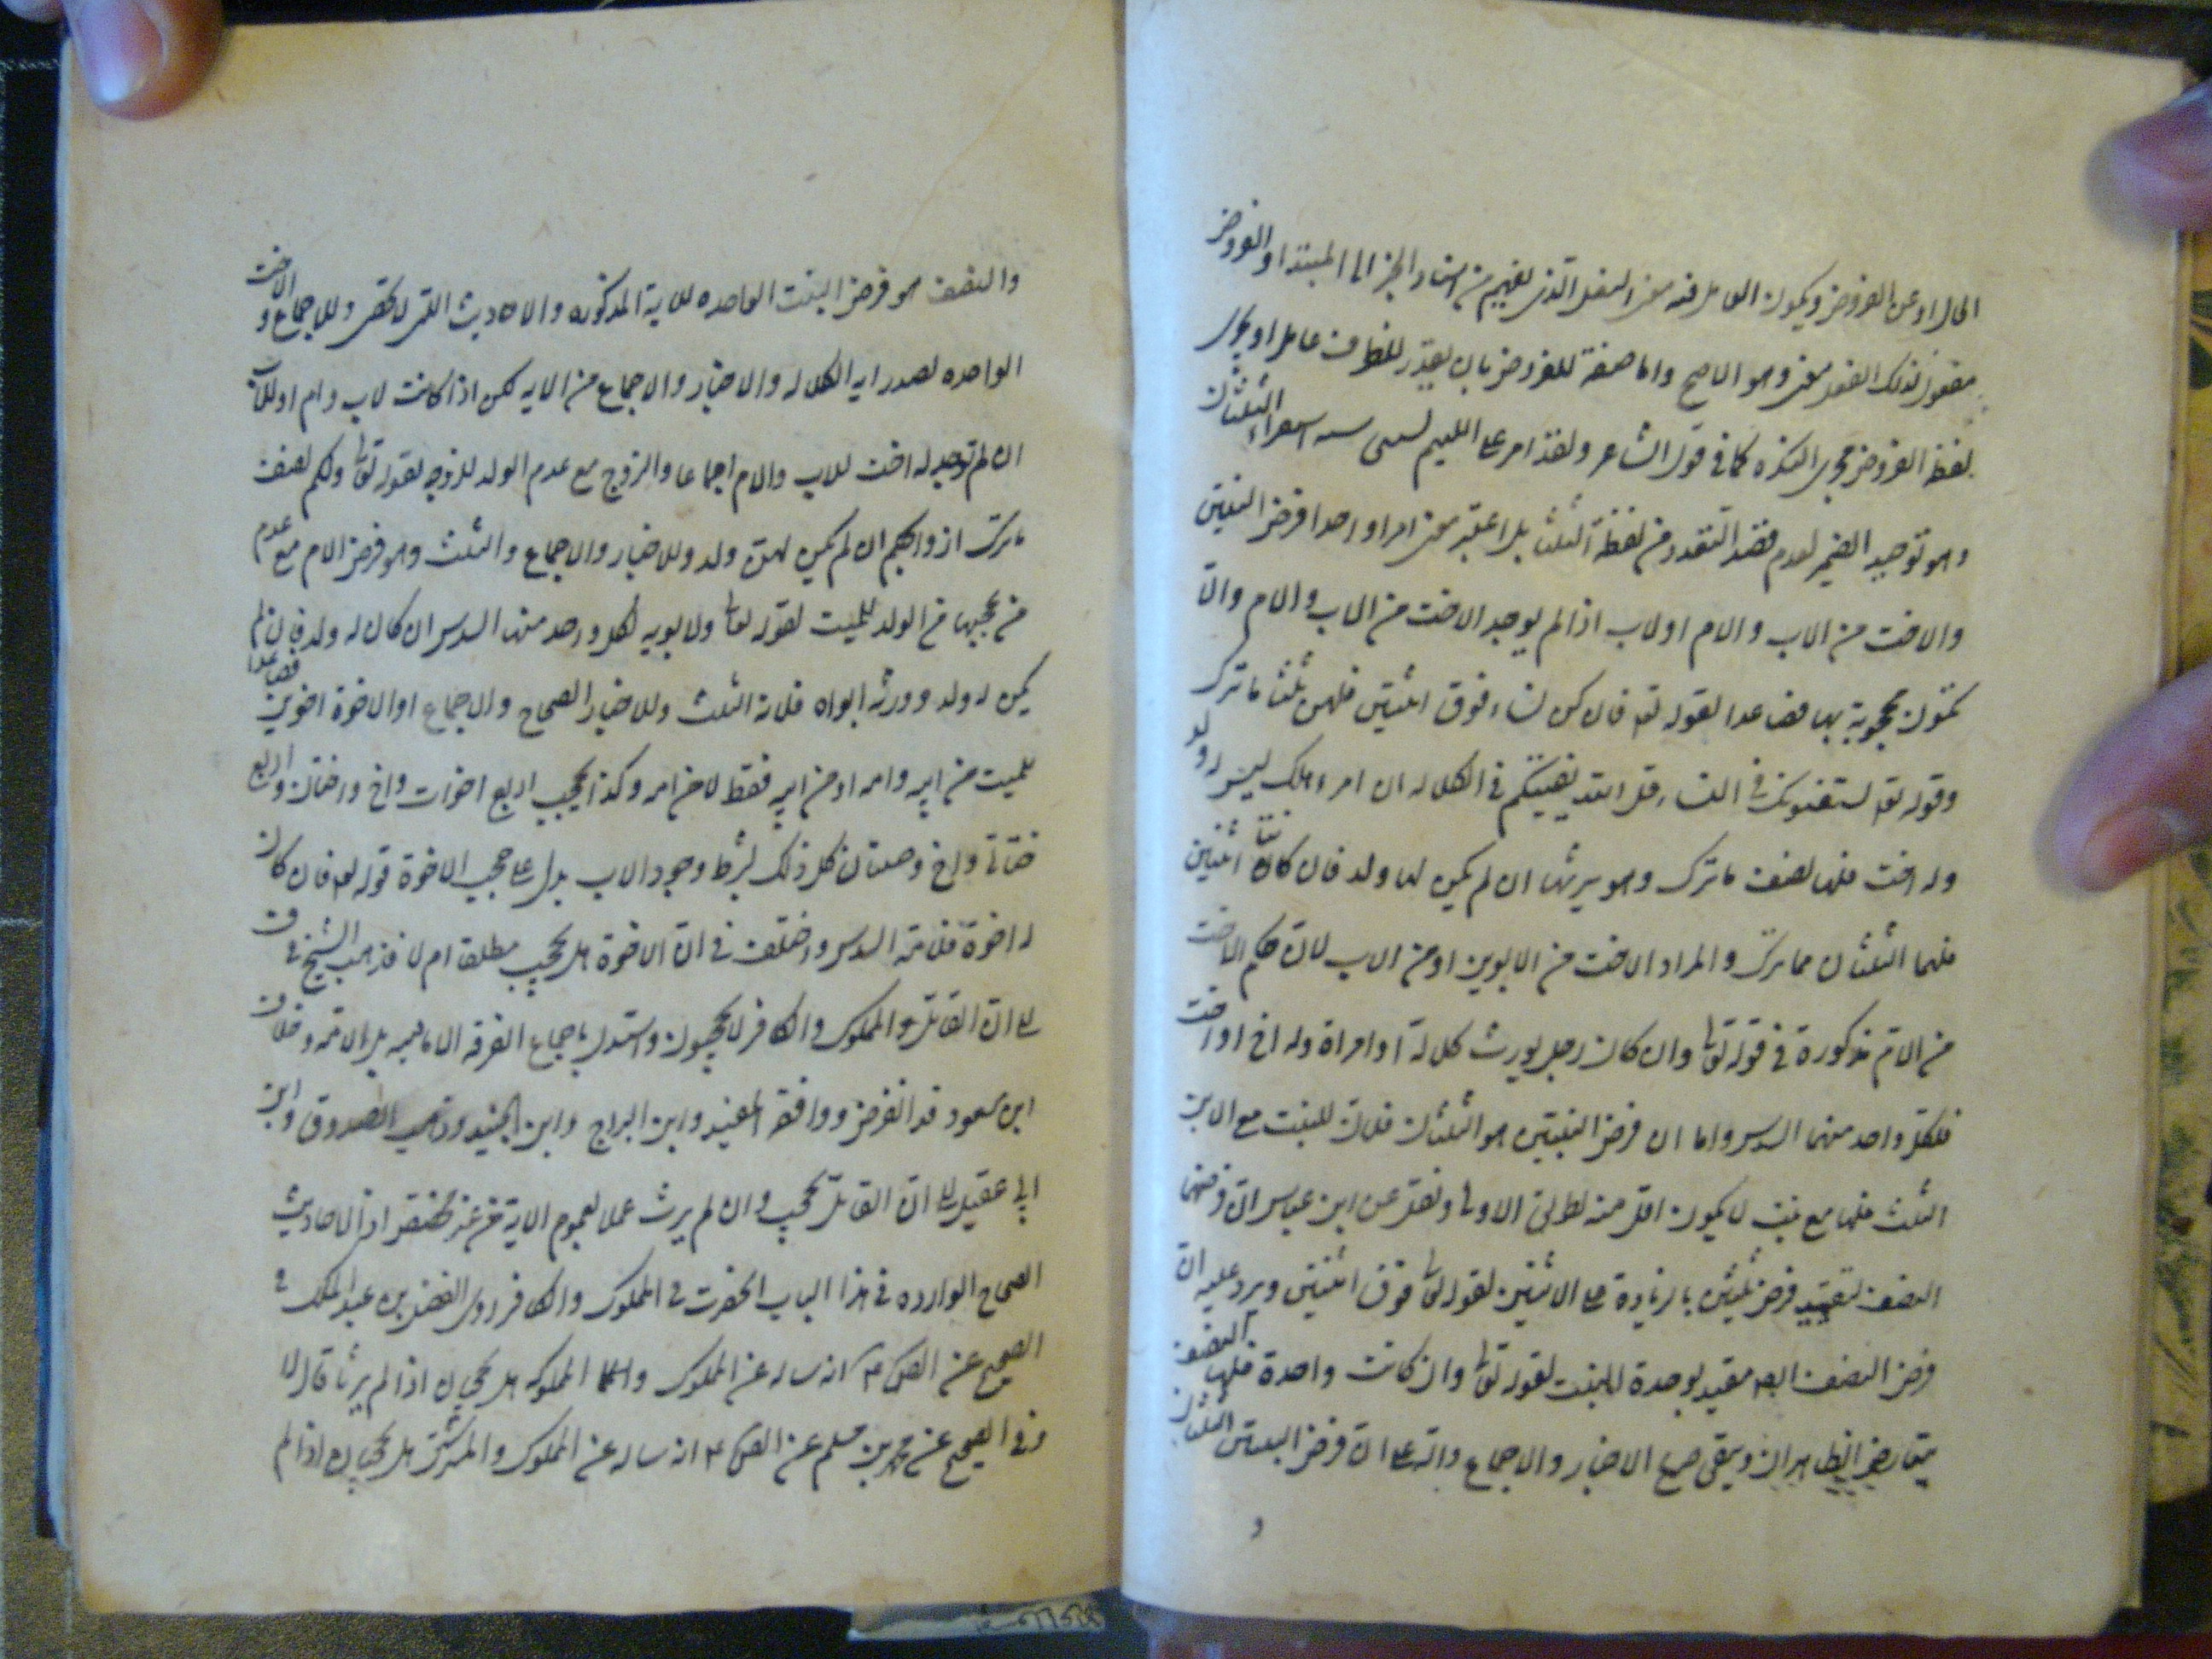 الحال او عن الفروض ويكون العامل فيه معنى الفعل الذى يفهم من اسناد الخبر الى المبتدا والفروض
مفعول لذلك الفعل معنى وهو الاصح واما صفة للفروض بان يقدر للظرف عاملا ويجرى
لفظ الفروض مجرى النكرة كما فى قول الشاعر ولقد امر على اللئيم يسبنى الثلثان
وهو توحيد الضمير لعدم قصد التعدد من لفظة الثلث بل اعتبر معنى امرا واحدا فرض البنتين
والاخت من الاب والام او لاب اذا لم يوجد الاخت من الاب والام والا
تكون محجوبة بها فصاعدا لقوله تعه فان كن نساء فوق اثنتين فلهن ثلثا ما ترك
وقوله تعه يستفتونك فى النساء قل الله يفتيكم فى الكلاله ان امرء هلك ليس له ولد
وله اخت فلها نصف ما ترك وهو يرثها ان لم يكن لها ولد فان كانتا اثنتين
فلهما الثلثان مما ترك والمراد الاخت من الابوين او من الاب لان حكم الاخت
من الام مذكورة فى قوله تعالى وان كان رجل يورث كلالة او امراة وله اخ او اخت
فلكل واحد منهما السدس واما ان فرض البنتين هو الثلثان فلان للبنت مع الابن
الثلث فلها مع بنت لا يكون اقل منه بطريق الاولى ونقل عن ابن عباس ان فرضهما
النصف لتقييد فرض ثلثين بالزيادة على الاثنتين لقوله تعالى فوق اثنتين ويرد عليه ان
فرض النصف ايضه مقيد بوحدة البنت لقوله تعالى وان كانت واحدة فلها النصف
يتعارض الظاهران ويبقى صريح الاخبار والاجماع دالة على ان فرض البنتين الثلثان
و
والنصف هو فرض البنت الواحده للاية المذكوره والاحاديث التى لا تحصى وللاجماع والاخت
الواحده لصدر ايه الكلاله والاخبار والاجماع من الايه لكن اذا كانت لاب وام او للاب
ان لم توجد له اخت للاب والام اجماعا والزوج مع عدم الولد للزوجه لقوله تعالى ولكم نصف
ما ترك ازواجكم ان لم يكن لهن ولد وللاخبار والاجماع والثلث وهو فرض الام مع عدم
من يحجبها من الولد للميت لقوله تعالى ولابويه لكل واحد منهما السدس ان كان له ولد فان لم
يكن له ولد وورثه ابواه فلامه الثلث وللاخبار الصحاح والاجماع او الاخوة اخوين فصاعدا
للميت من ابيه وامه او من ابيه فقط لا من امه وكذا يحجب اربع اخوات واخ واختان واربع
خناثى واخ وخنثيان كل ذلك بشرط وجود الاب يدل على حجب الاخوة قوله تعه فان كان
له اخوة فلامه السدس واختلف فى ان الاخوة هل يحجب مطلقا ام لا فذهب الشيخ فى ف
الى ان القاتل والمملوك والكافر لا يحجبون واستدل باجماع الفرقه الاماميه بل الامه وخلاف
ابن مسعود قد انقرض ووافقه المفيد وابن البراج وابن الجنيد وذهب الصدوق وابن
ابى عقيل الى ان القاتل يحجب وان لم يرث عملا بعموم الاية من غير مخصص اذ الاحاديث
الصحاح الوارده فى هذا الباب انحصرت فى المملوك والكافر روى الفضل بن عبد الملك فى
الصحيح عن الصادق ع انه ساله عن المملوك والمملوكه هل يحجبان اذا لم يرثا قال لا
وفى الصحيح عن محمد بن مسلم عن الصادق ع انه ساله عن المملوك والمشرك هل يحجبان اذا لم